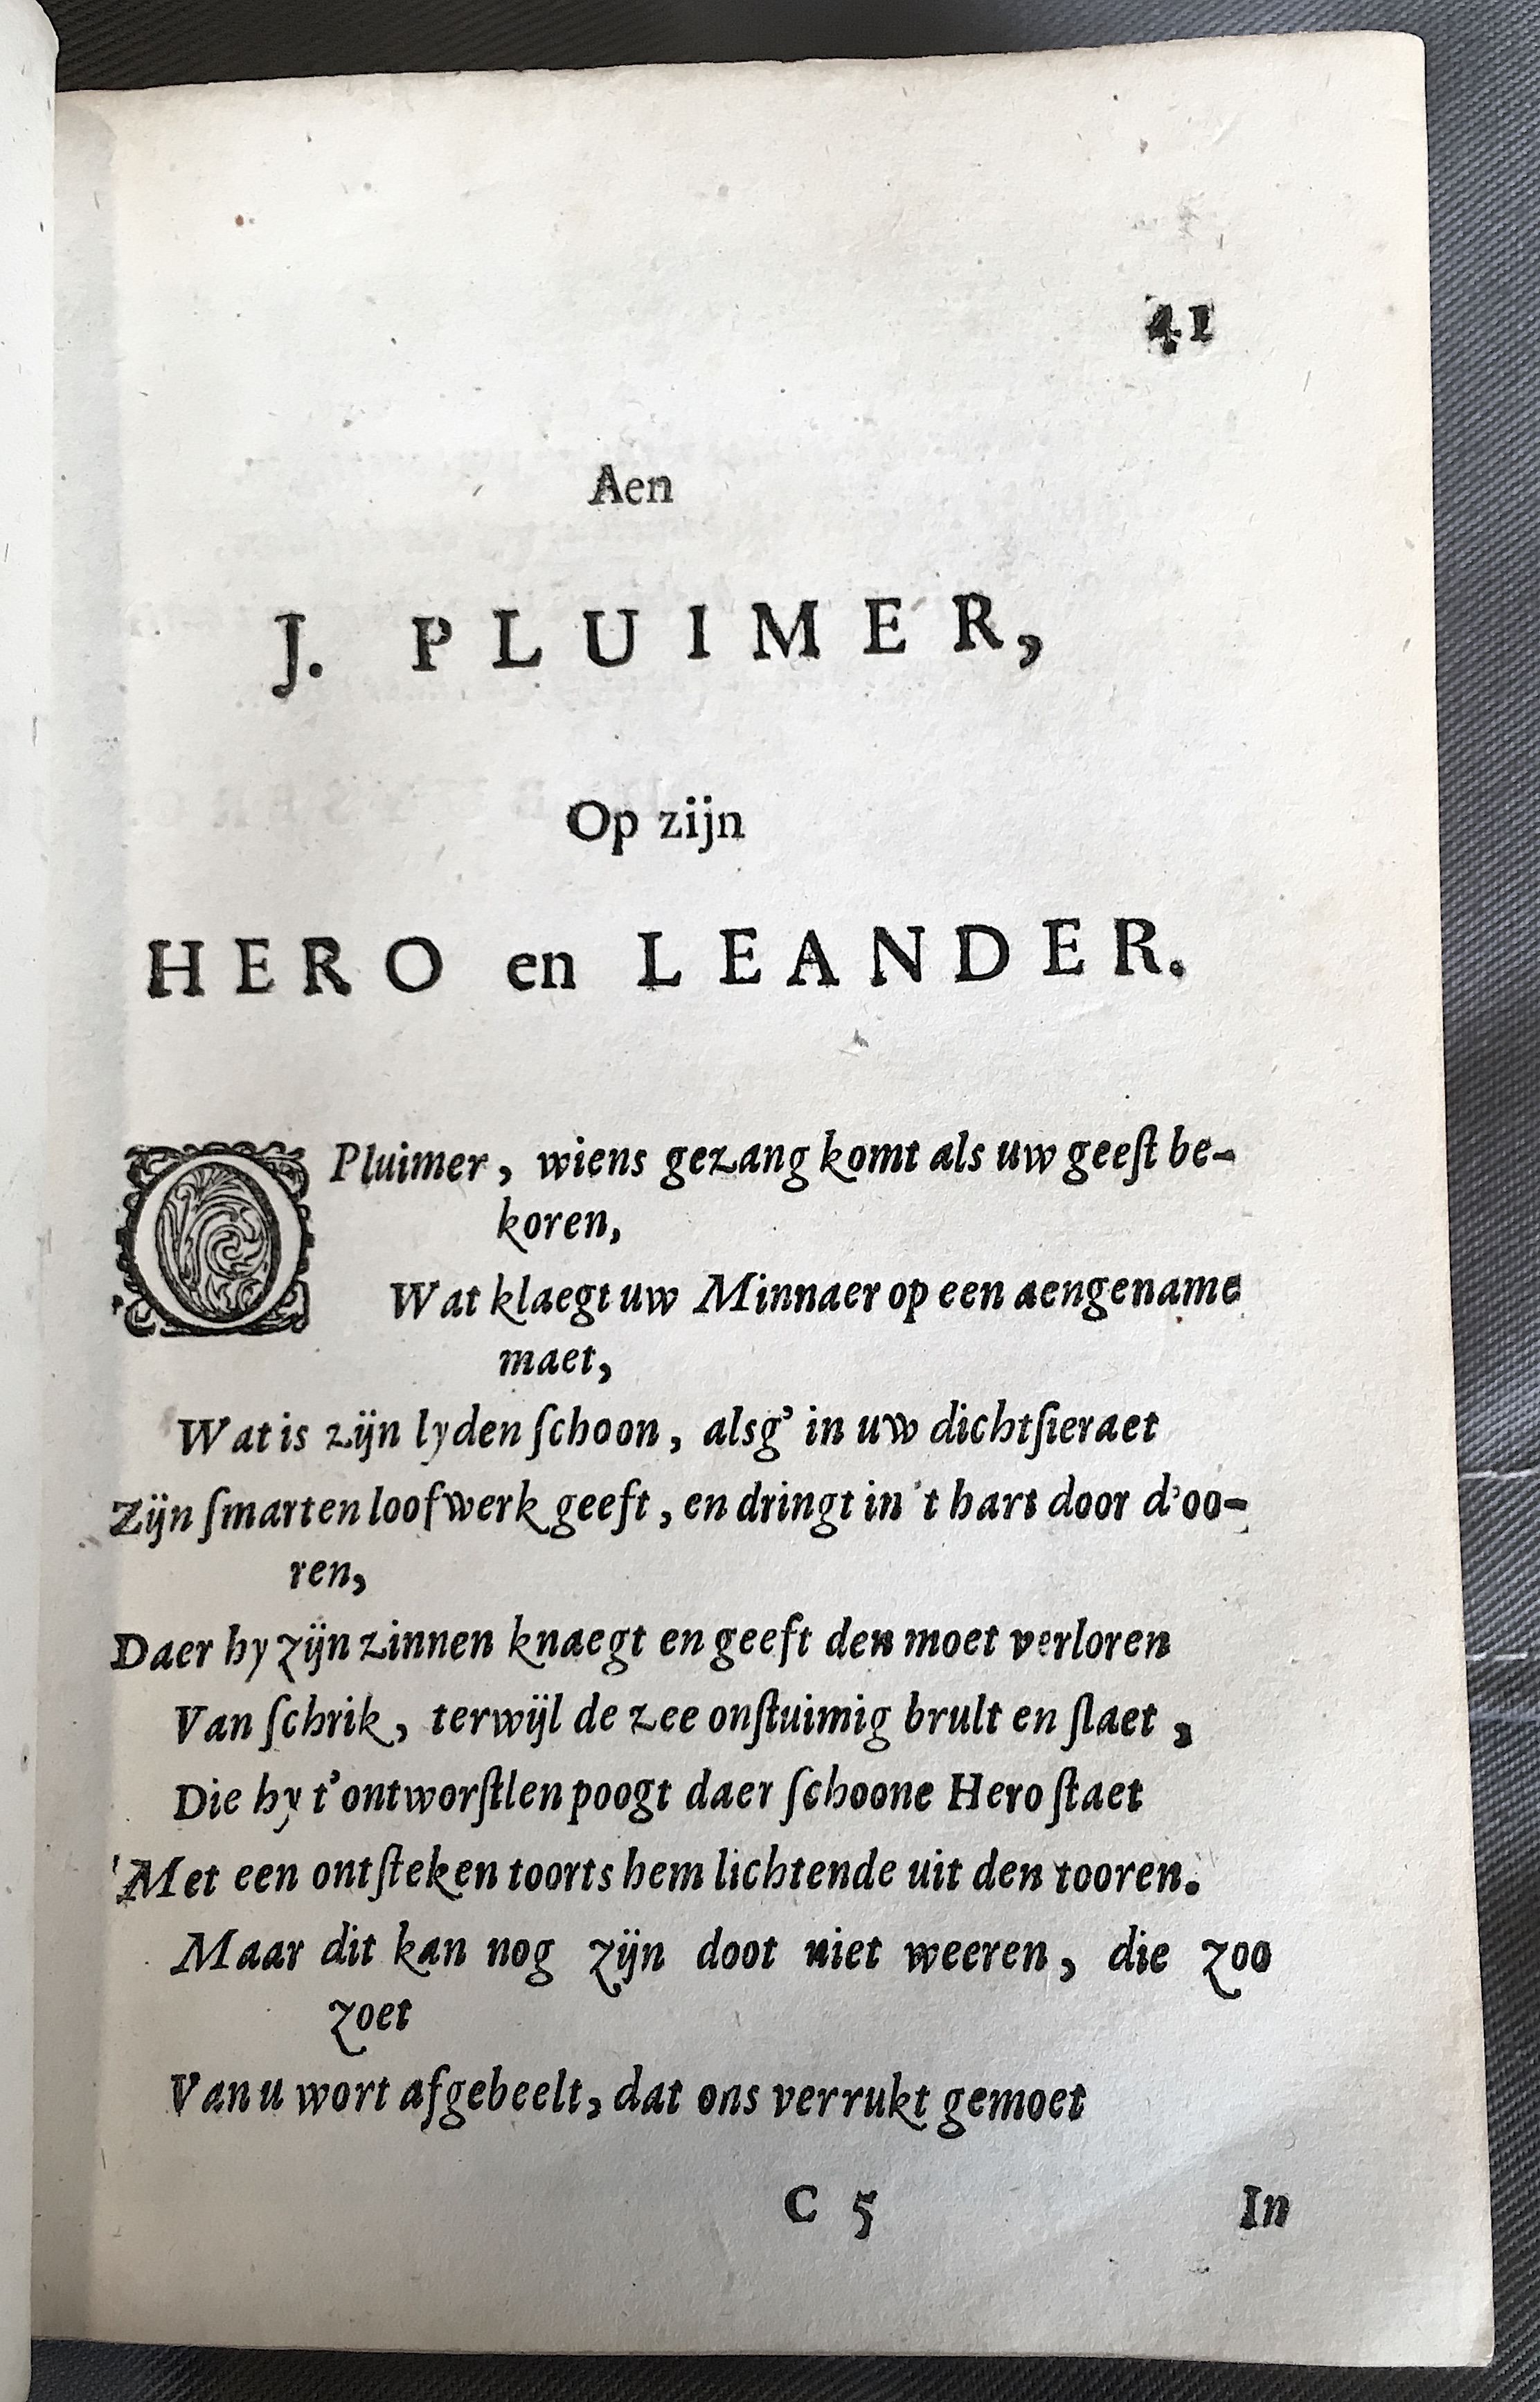 41
Aen
J. PLUIMER,
Op zijn
HERO en LEANDER.
O Pluimer, wiens gezang komt als uw geeſt be-
koren,
Wat klaegt uw Minnaer op een aengename
maet,
Wat is zijn lyden ſchoon, alsg' in uw dichtſieraet
Zijn ſmarten loofwerk geeft, en dringt in 't hart door d'oo-
ren,
Daer hy zijn zinnen knaegt en geeft den moet verloren
Van ſchrik, terwijl de zee onſtuimig brult en ſlaet,
Die hy t'ontworſtlen poogt daer ſchoone Hero ſtaet
Met een ontſteken toorts hem lichtende uit den tooren.
Maar dit kan nog zijn doot niet weeren, die zoo
zoet
Van u wort afgebeelt, dat ons verrukt gemoet
C 5 In